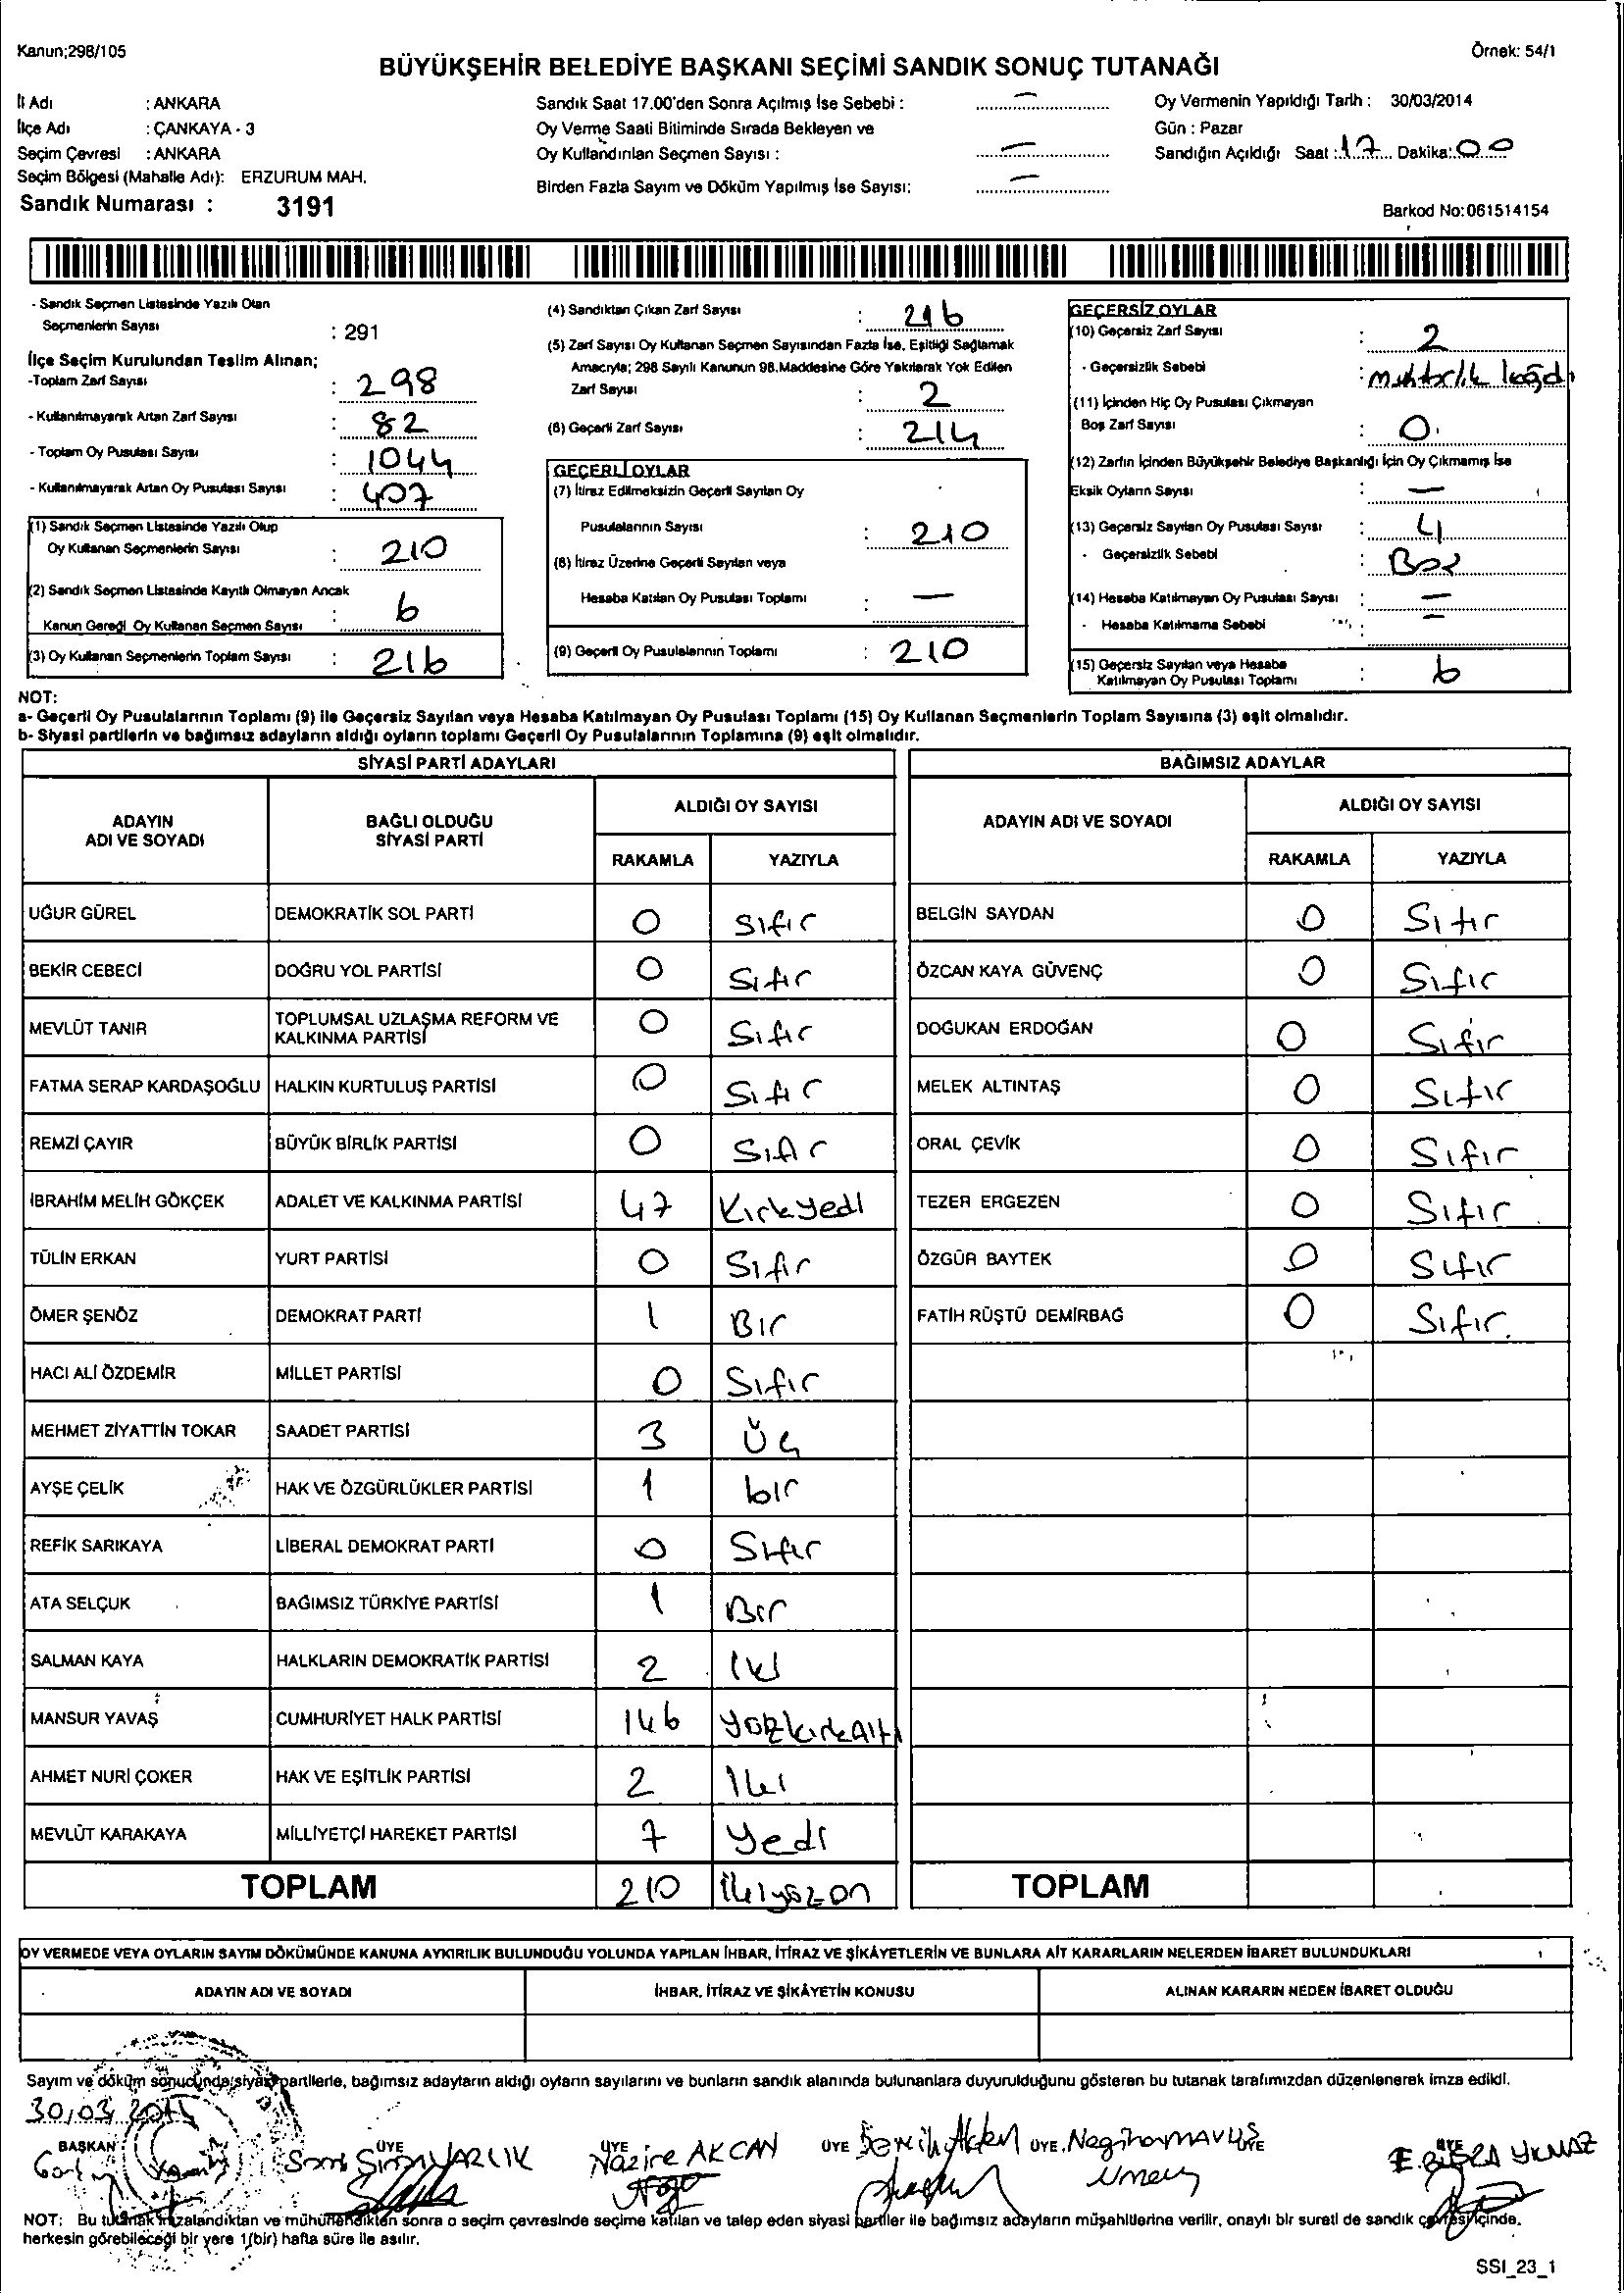 Kanun;298/105
Örnek: 54/1
BÜYÜKŞEHİR BELEDİYE BAŞKANI SEÇİMİ SANDIK SONUÇ TUTANAĞI
İl Adı : ANKARA
İlçe Adı : ÇANKAYA - 3
Seçim Çevresi : ANKARA
Seçim Bölgesi (Mahalle Adı): ERZURUM MAH.
Sandık Numarası : 3191
Sandık Saat 17.00'den Sonra Açılmış İse Sebebi : —
Oy Verme Saati Bitiminde Sırada Bekleyen ve
Oy Kullandırılan Seçmen Sayısı : —
Birden Fazla Sayım ve Döküm Yapılmış İse Sayısı: —
Oy Vermenin Yapıldığı Tarih : 30/03/2014
Gün : Pazar
Sandığın Açıldığı Saat : 17 Dakika: 00
Barkod No:061514154
- Sandık Seçmen Listesinde Yazılı Olan
Seçmenlerin Sayısı : 291
İlçe Seçim Kurulundan Teslim Alınan;
-Toplam Zarf Sayısı : 298
- Kullanılmayarak Artan Zarf Sayısı : 82
- Toplam Oy Pusulası Sayısı : 1044
- Kullanılmayarak Artan Oy Pusulası Sayısı : 407
(1) Sandık Seçmen Listesinde Yazılı Olup
Oy Kullanan Seçmenlerin Sayısı : 210
(2) Sandık Seçmen Listesinde Kayıtlı Olmayan Ancak
Kanun Gereği Oy Kullanan Seçmen Sayısı : 6
(3) Oy Kullanan Seçmenlerin Toplam Sayısı : 216
(4) Sandıktan Çıkan Zarf Sayısı : 216
(5) Zarf Sayısı Oy Kullanan Seçmen Sayısından Fazla İse, Eşitliği Sağlamak
Amacıyla; 298 Sayılı Kanunun 98.Maddesine Göre Yakılarak Yok Edilen
Zarf Sayısı : 2
(6) Geçerli Zarf Sayısı : 214
GEÇERLİ OYLAR
(7) İtiraz Edilmeksizin Geçerli Sayılan Oy
Pusulalarının Sayısı : 210
(8) İtiraz Üzerine Geçerli Sayılan veya
Hesaba Katılan Oy Pusulası Toplamı : —
(9) Geçerli Oy Pusulalarının Toplamı : 210
GEÇERSİZ OYLAR
(10) Geçersiz Zarf Sayısı : 2
- Geçersizlik Sebebi : muhtarlık kağdı
(11) İçinden Hiç Oy Pusulası Çıkmayan
Boş Zarf Sayısı : 0
(12) Zarfın İçinden Büyükşehir Belediye Başkanlığı İçin Oy Çıkmamış İse
Eksik Oyların Sayısı : —
(13) Geçersiz Sayılan Oy Pusulası Sayısı : 4
- Geçersizlik Sebebi : Boş
(14) Hesaba Katılmayan Oy Pusulası Sayısı : —
- Hesaba Katılmama Sebebi : —
(15) Geçersiz Sayılan veya Hesaba
Katılmayan Oy Pusulası Toplamı : 6
NOT:
a- Geçerli Oy Pusulalarının Toplamı (9) ile Geçersiz Sayılan veya Hesaba Katılmayan Oy Pusulası Toplamı (15) Oy Kullanan Seçmenlerin Toplam Sayısına (3) eşit olmalıdır.
b- Siyasi partilerin ve bağımsız adayların aldığı oyların toplamı Geçerli Oy Pusulalarının Toplamına (9) eşit olmalıdır.
SİYASİ PARTİ ADAYLARI
ADAYIN ADI VE SOYADI BAĞLI OLDUĞU SİYASİ PARTİ ALDIĞI OY SAYISI
RAKAMLA YAZIYLA
UĞUR GÜREL DEMOKRATİK SOL PARTİ 0 Sıfır
BEKİR CEBECİ DOĞRU YOL PARTİSİ 0 Sıfır
MEVLÜT TANIR TOPLUMSAL UZLAŞMA REFORM VE KALKINMA PARTİSİ 0 Sıfır
FATMA SERAP KARDAŞOĞLU HALKIN KURTULUŞ PARTİSİ 0 Sıfır
REMZİ ÇAYIR BÜYÜK BİRLİK PARTİSİ 0 Sıfır
İBRAHİM MELİH GÖKÇEK ADALET VE KALKINMA PARTİSİ 47 Kırkyedi
TÜLİN ERKAN YURT PARTİSİ 0 Sıfır
ÖMER ŞENÖZ DEMOKRAT PARTİ 1 Bir
HACI ALİ ÖZDEMİR MİLLET PARTİSİ 0 Sıfır
MEHMET ZİYATTİN TOKAR SAADET PARTİSİ 3 Üç
AYŞE ÇELİK HAK VE ÖZGÜRLÜKLER PARTİSİ 1 bir
REFİK SARIKAYA LİBERAL DEMOKRAT PARTİ 0 Sıfır
ATA SELÇUK BAĞIMSIZ TÜRKİYE PARTİSİ 1 Bir
SALMAN KAYA HALKLARIN DEMOKRATİK PARTİSİ 2 İki
MANSUR YAVAŞ CUMHURİYET HALK PARTİSİ 146 Yüzkırkaltı
AHMET NURİ ÇOKER HAK VE EŞİTLİK PARTİSİ 2 İki
MEVLÜT KARAKAYA MİLLİYETÇİ HAREKET PARTİSİ 7 Yedi
TOPLAM 210 İkiyüzon
BAĞIMSIZ ADAYLAR
ADAYIN ADI VE SOYADI ALDIĞI OY SAYISI
RAKAMLA YAZIYLA
BELGİN SAYDAN 0 Sıfır
ÖZCAN KAYA GÜVENÇ 0 Sıfır
DOĞUKAN ERDOĞAN 0 Sıfır
MELEK ALTINTAŞ 0 Sıfır
ORAL ÇEVİK 0 Sıfır
TEZER ERGEZEN 0 Sıfır
ÖZGÜR BAYTEK 0 Sıfır
FATİH RÜŞTÜ DEMİRBAĞ 0 Sıfır
TOPLAM
OY VERMEDE VEYA OYLARIN SAYIM DÖKÜMÜNDE KANUNA AYKIRILIK BULUNDUĞU YOLUNDA YAPILAN İHBAR, İTİRAZ VE ŞİKÂYETLERİN VE BUNLARA AİT KARARLARIN NELERDEN İBARET BULUNDUKLARI
ADAYIN ADI VE SOYADI İHBAR, İTİRAZ VE ŞİKÂYETİN KONUSU ALINAN KARARIN NEDEN İBARET OLDUĞU
Sayım ve döküm sonucunda siyasi partilerle, bağımsız adayların aldığı oyların sayılarını ve bunların sandık alanında bulunanlara duyurulduğunu gösteren bu tutanak tarafımızdan düzenlenerek imza edildi.
30/03/2014
BAŞKAN ÜYE ÜYE Nazire AKCAN ÜYE ÜYE ÜYE
NOT: Bu tutanak imzalandıktan ve mühürlendikten sonra o seçim çevresinde seçime katılan ve talep eden siyasi partiler ile bağımsız adayların müşahitlerine verilir, onaylı bir sureti de sandık çevresi içinde,
herkesin görebileceği bir yere 1(bir) hafta süre ile asılır.
SSI_23_1